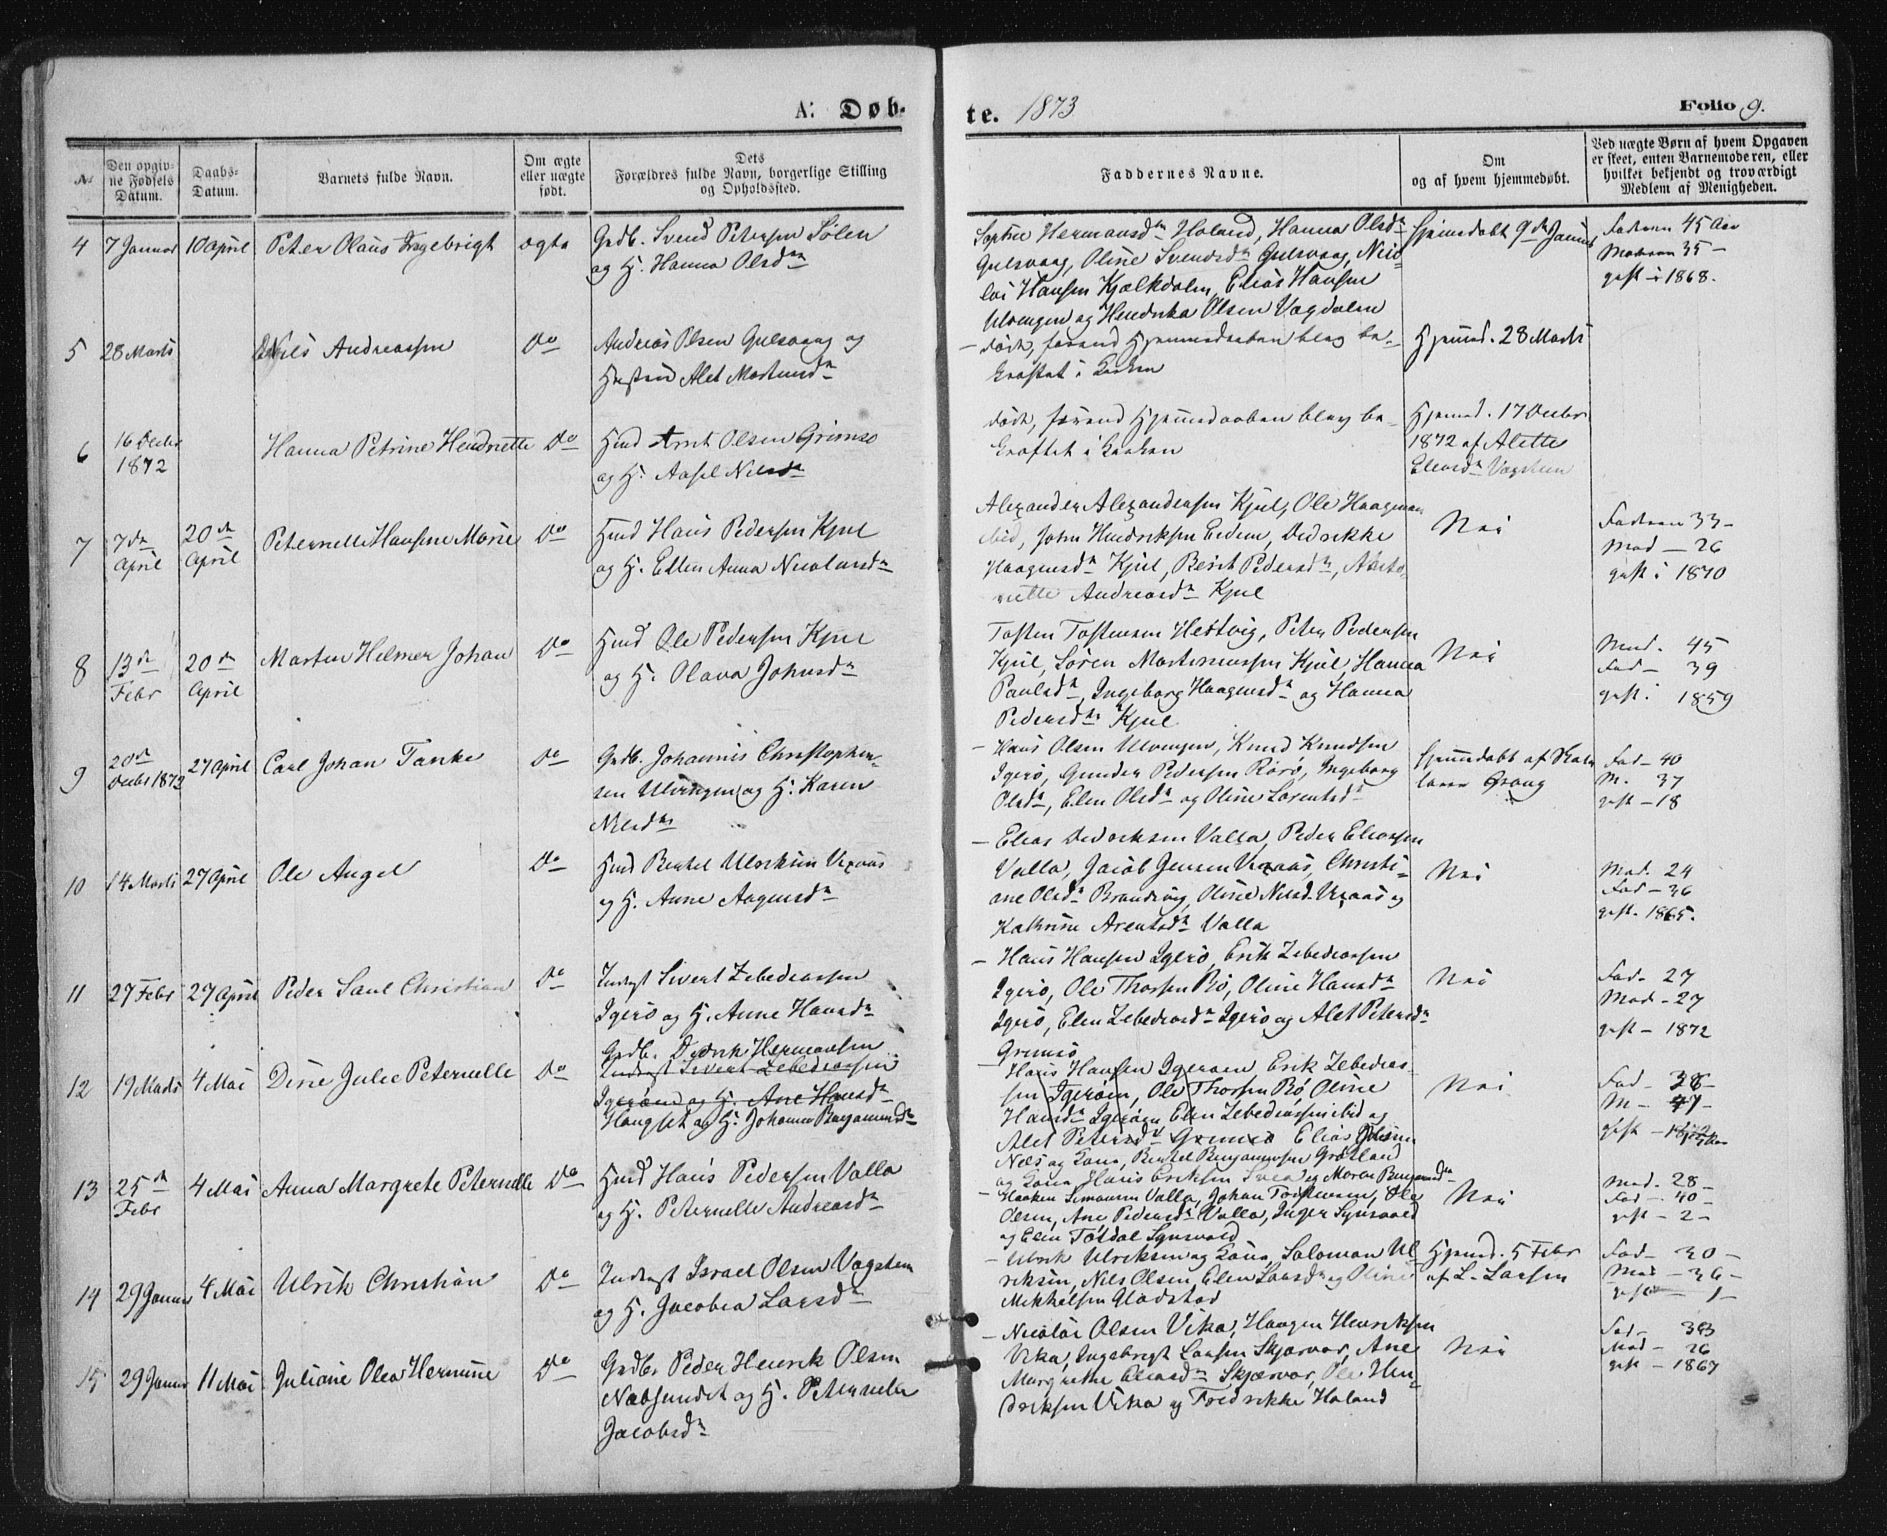 A: Døb-
te. 1873
Folio 9.
№
Den opgivne Fødsels Datum.
Daabs-Datum.
Barnets fulde Navn.
Om ægte eller uægte født.
Dets Forældres fulde Navn, borgerlige Stilling og Opholdssted.
Faddernes Navne.
Om og af hvem hjemmedøbt.
Ved uægte Børn af hvem Opgaven er skeet, enten Barnemoderen, eller hvilket bekjendt og troværdigt Medlem af Menigheden.
4 7 Januar 10 April Peter Olaus Ingebrigt ægte
Grdb. Svend Petersen Sølen
og H. Hanna Olsdtr
Sophie Hermansdtr Holand, Hanna Olsdtr
Gulsvaag, Oline Svendsdtr Gulsvaag, Nico-
lai Hansen Kjælkdalen, Elias Hansen
Ulvingen og Hendrika Olsen Vagdalen
Hjemdøbt 9de Januar
Faderen 45 Aar
Moderen 35 –
gift i 1868.
5 28 Marts Nils Andreassen Do
Andreas Olsen Gulsvaag og
Hustru Alet Mortensdtr
– døde, førend Hjemmedaaben blev be-
kræftet i Kirken
Hjemmd. 28 Marts
6 16 Decbr
1872
Hanna Petrine Hendriette Do
Hmd Arnt Olsen Grimsø
og H. Aasel Nilsdtr
døde, førend Hjemmedaaben blev be-
kræftet i Kirken
Hjemmd. 17 Decbr
1872 af Alette
Eliasdtr Vagsteen
7 7de
April
20de
April
Peternelle Hansine Marie Do
Hmd Hans Pedersen Kjul
og H. Ellen Anna Nicolaisdtr
Alexander Alexandersen Kjul, Ole Haagensen
ibid, John Hendriksen Eidem, Dedrikke
Haagensdtr Kjul, Berit Pedersdtr,
Andreasdtr Kjul
Nei
Faderen 33 –
Mod – 26
gift i 1870
8 13de
Febr
20de
April
Martin Helmer Johan Do
Hmd Ole Pedersen Kjul
og H. Olava Johnsdtr
Tosten Tostensen Hestvig, Peter Pedersen
Kjul, Sören Mortensen Kjul, Hanna
Paulsdtr, Ingeborg Haagensdtr og Hanna
Pedersdtr Kjul
Nei
Mod. 45
Fad – 39
gift i 1859
9 20de
Decbr 1872
27 April Carl Johan Tanke Do
Grdb. Johannes Christopher-
sen Ulvingen og H. Karen
Nilsdtr
– Hans Olsen Ulvingen, Knud Knudsen
Igerø, Gunder Pedersen Rørø, Ingeborg
Olsdtr, Elen Olsdtr og Oline Lorentsdtr
Hjemmdøbt af
Fad – 40
M. 37
gift – 18
10 14 Marts 27 April Ole Angel Do
Hmd Bertel Ulriksen Vexaas
og H. Anne Aagensdtr
– Elias Dedriksen Valla, Peder Eliassen
Valla, Jacob Jensen Vexaas, Christi-
ane Olsdtr Brandvig, Oline Nilsd. Vexaas og
Kathrine Arentsdtr Valla
Nei
Mod. 24
Fad – 36
gift. 1865.
11 27 Febr 27 April Peder Saul Christian Do
Inderst Sivert Zebediassen
Igerø og H. Anne Hansdtr
– Hans Hansen Igerø, Erik Zebediassen
Igerø, Ole Thorsen Rø, Oline Hansdtr
Igerø, Elen Zebediasdtr Igerø og Alet Petersdtr
Grimsø
Nei
Fad – 27
Mod – 27
gift – 1872
12 19 Marts 4 Mai Dine Julie Peternelle Do
Grdb. Dedrik Hermansen
Inderst Sivert Zebediassen
Igerøen og H. Ane Hansdtr
Haugset og H. Johanna Benjaminsdtr
Hans Hansen Igerøen Erik Zebedias-
sen Igerøen, Ole Thorsen Rø Oline
Hansdtr Igerøen Elen Zebediassen ibid og
Alet Petersdtr Grimsø Elias Olsen
Næs og Kona, Bertel Benjaminsen Grøtland
og Kona Hans Eriksen og Maren Benjaminsdtr
Nei
Fad – 38 –
M – 47 –
gift –
13 25de
Febr
4 Mai Anna Margrete Peternelle Do
Hmd Hans Pedersen Valla
og H. Peternelle Andreasdtr
– Haaken Simonsen Valla, Johan Tostensen, Ole
Olsen, Ane Pedersdtr Valla, Inger Synsvold
og Elen Tøtdal Synsvold
Nei
Mod – 28 –
Fad – 40 –
gift – 2 –
14 29 Januar 4 Mai Ulrik Christian Do
Inderst Israel Olsen Vagsteen
og H. Jacobia Larsdtr
– Ulrik Ulriksen og Kona, Salomon Ul-
riksen, Nils Olsen, Elen Larsdtr og Oline
Mikkelsen Gladstad
Hjemmd. 5 Febr
af L. Larsen
Fad – 30 –
Mod – 36 –
gift – 1 –
15 29 Januar 11 Mai Juliane Olea Hermine Do
Grdb. Peder Henrik Olsen
Næbsundet og H. Peternelle
Jacobsdtr
– Nicolai Olsen Vika, Haagen Henriksen
Vika, Ingebrigt Larsen Skjærvær, Ane
Margrethe Eliasdtr Skjærvær, Ole Hen-
driksen Vika og Fredrikke Holand
Nei
Fad – 33
Mod – 26
gift – 1867